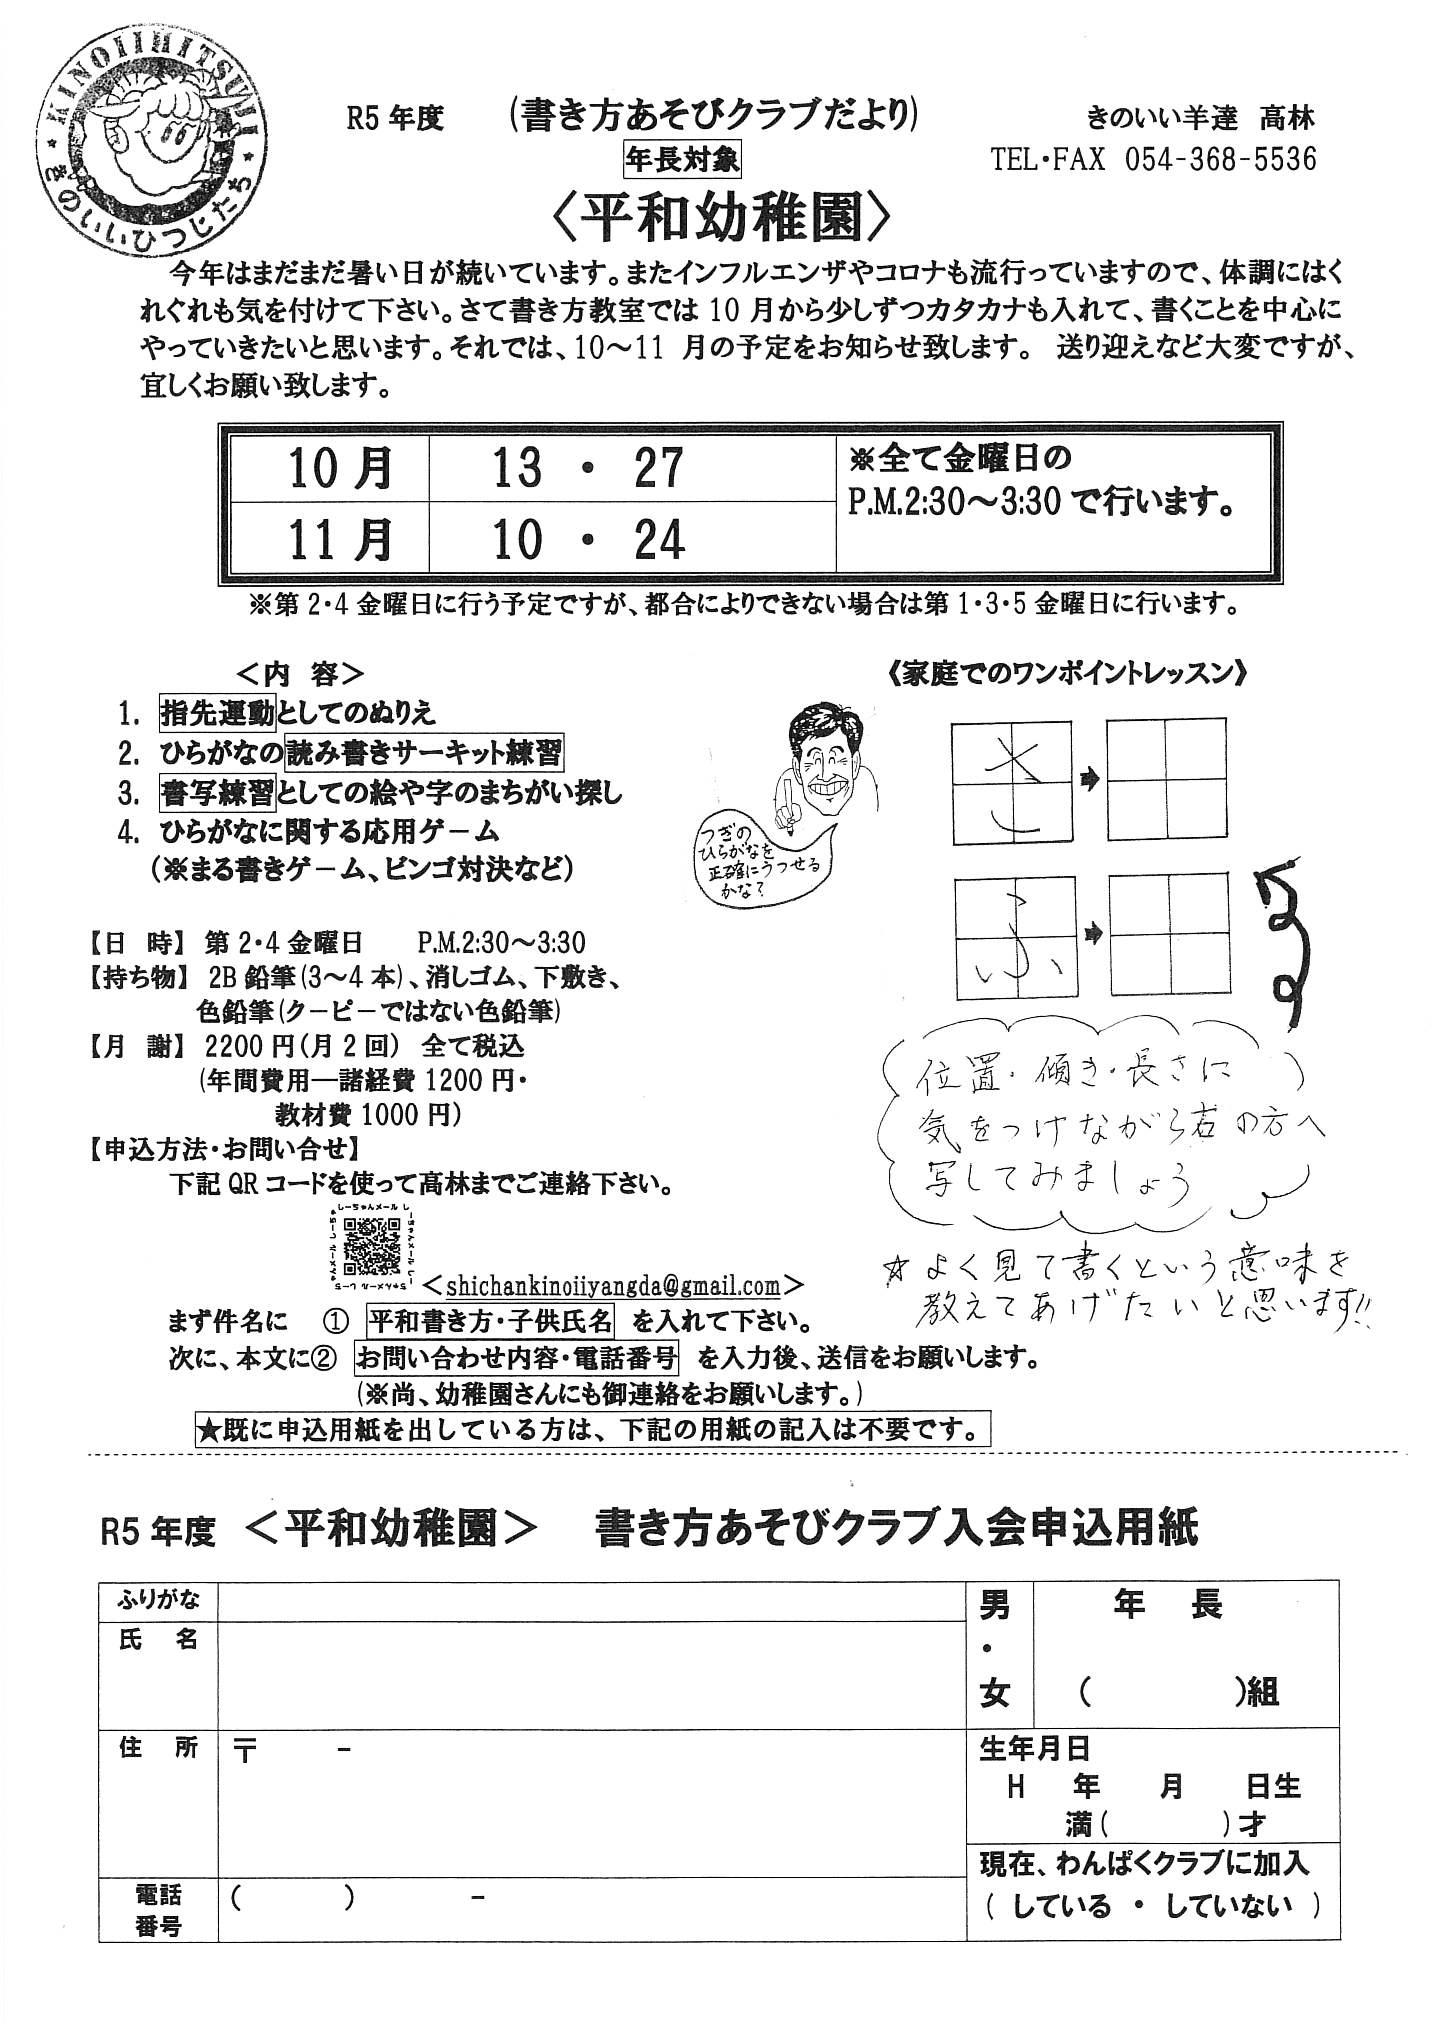 KINOIIHITSUJI
きのいいひつじたち
R5 年度 (書き方あそびクラブだより) きのいい羊達 高林
年長対象 TEL・FAX 054-368-5536
〈平和幼稚園〉
今年はまだまだ暑い日が続いています。またインフルエンザやコロナも流行っていますので、体調にはく
れぐれも気を付けて下さい。さて書き方教室では 10 月から少しずつカタカナも入れて、書くことを中心に
やっていきたいと思います。それでは、10～11 月の予定をお知らせ致します。 送り迎えなど大変ですが、
宜しくお願い致します。
10 月 13 ・ 27
11 月 10 ・ 24
※全て金曜日の
P.M.2:30～3:30 で行います。
※第 2・4 金曜日に行う予定ですが、都合によりできない場合は第 1・3・5 金曜日に行います。
＜内 容＞
1. 指先運動としてのぬりえ
2. ひらがなの読み書きサーキット練習
3. 書写練習としての絵や字のまちがい探し
4. ひらがなに関する応用ゲーム
(※まる書きゲーム、ビンゴ対決など)
つぎの
ひらがなを
正確にうつせる
かな？
《家庭でのワンポイントレッスン》
き
ふ
位置・傾き・長さに
気をつけながら右の方へ
写してみましょう
☆よく見て書くという意味を
教えてあげたいと思います!!
【日 時】 第 2・4 金曜日 P.M.2:30～3:30
【持ち物】 2B 鉛筆(3～4 本)、消しゴム、下敷き、
色鉛筆(クーピーではない色鉛筆)
【月 謝】 2200 円(月 2 回) 全て税込
(年間費用―諸経費 1200 円・
教材費 1000 円)
【申込方法・お問い合せ】
下記 QR コードを使って高林までご連絡下さい。
しーちゃんメール
＜shichankinoiiyangda@gmail.com＞
まず件名に ① 平和書き方・子供氏名 を入れて下さい。
次に、本文に② お問い合わせ内容・電話番号 を入力後、送信をお願いします。
(※尚、幼稚園さんにも御連絡をお願いします。)
★既に申込用紙を出している方は、下記の用紙の記入は不要です。
R5 年度 ＜平和幼稚園＞ 書き方あそびクラブ入会申込用紙
ふりがな
氏 名
男・女
年 長
( )組
住 所
〒 -
生年月日
H 年 月 日生
満( )才
電話
番号
( ) -
現在、わんぱくクラブに加入
( している ・ していない )